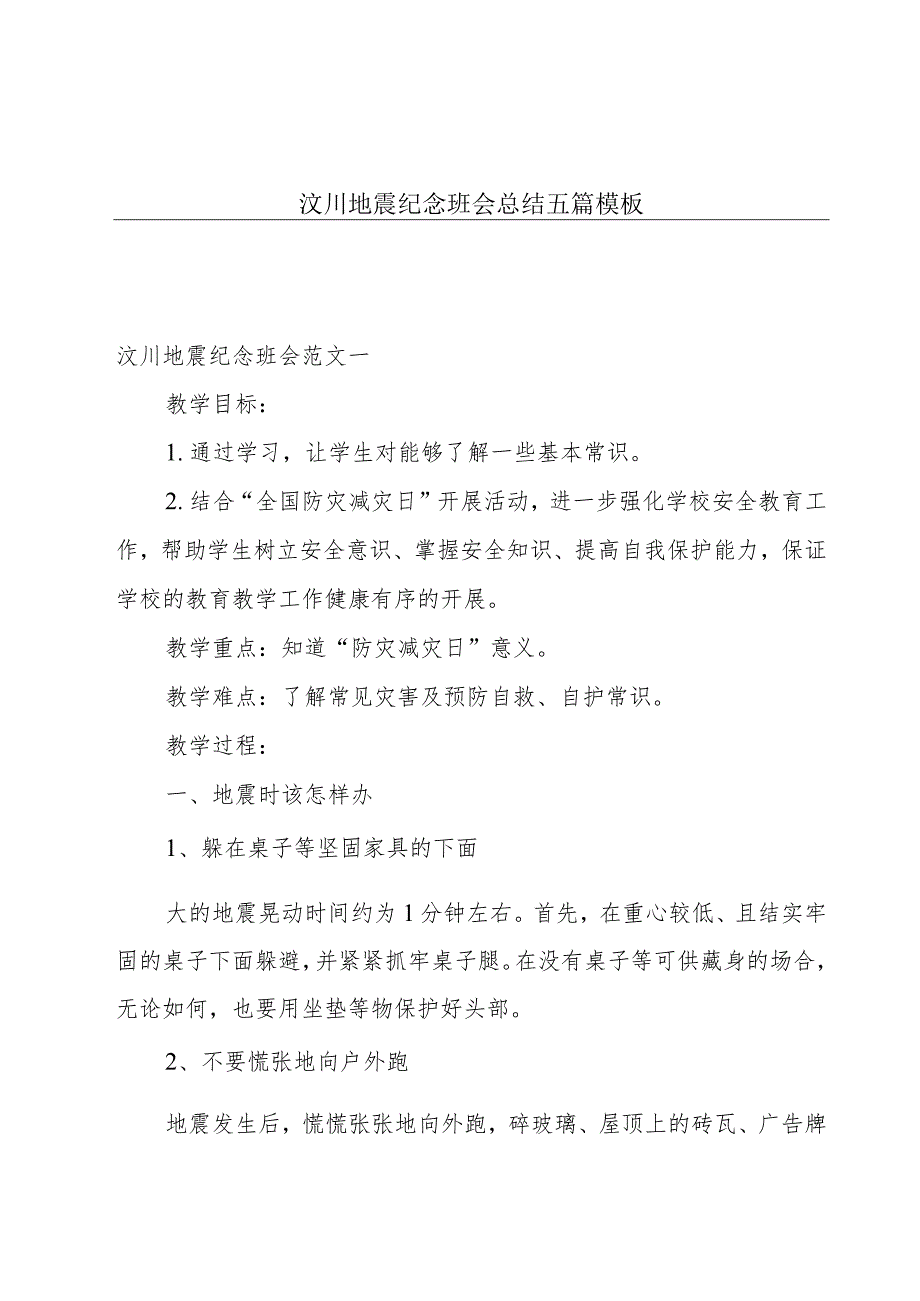 汶川地震纪念班会总结五篇模板
汶川地震纪念班会范文一
教学目标：
1. 通过学习，让学生对能够了解一些基本常识。
2. 结合“全国防灾减灾日”开展活动，进一步强化学校安全教育工
作，帮助学生树立安全意识、掌握安全知识、提高自我保护能力，保证
学校的教育教学工作健康有序的开展。
教学重点：知道“防灾减灾日”意义。
教学难点：了解常见灾害及预防自救、自护常识。
教学过程：
一、地震时该怎样办
1、躲在桌子等坚固家具的下面
大的地震晃动时间约为 1 分钟左右。首先，在重心较低、且结实牢
固的桌子下面躲避，并紧紧抓牢桌子腿。在没有桌子等可供藏身的场合，
无论如何，也要用坐垫等物保护好头部。
2、不要慌张地向户外跑
地震发生后，慌慌张张地向外跑，碎玻璃、屋顶上的砖瓦、广告牌